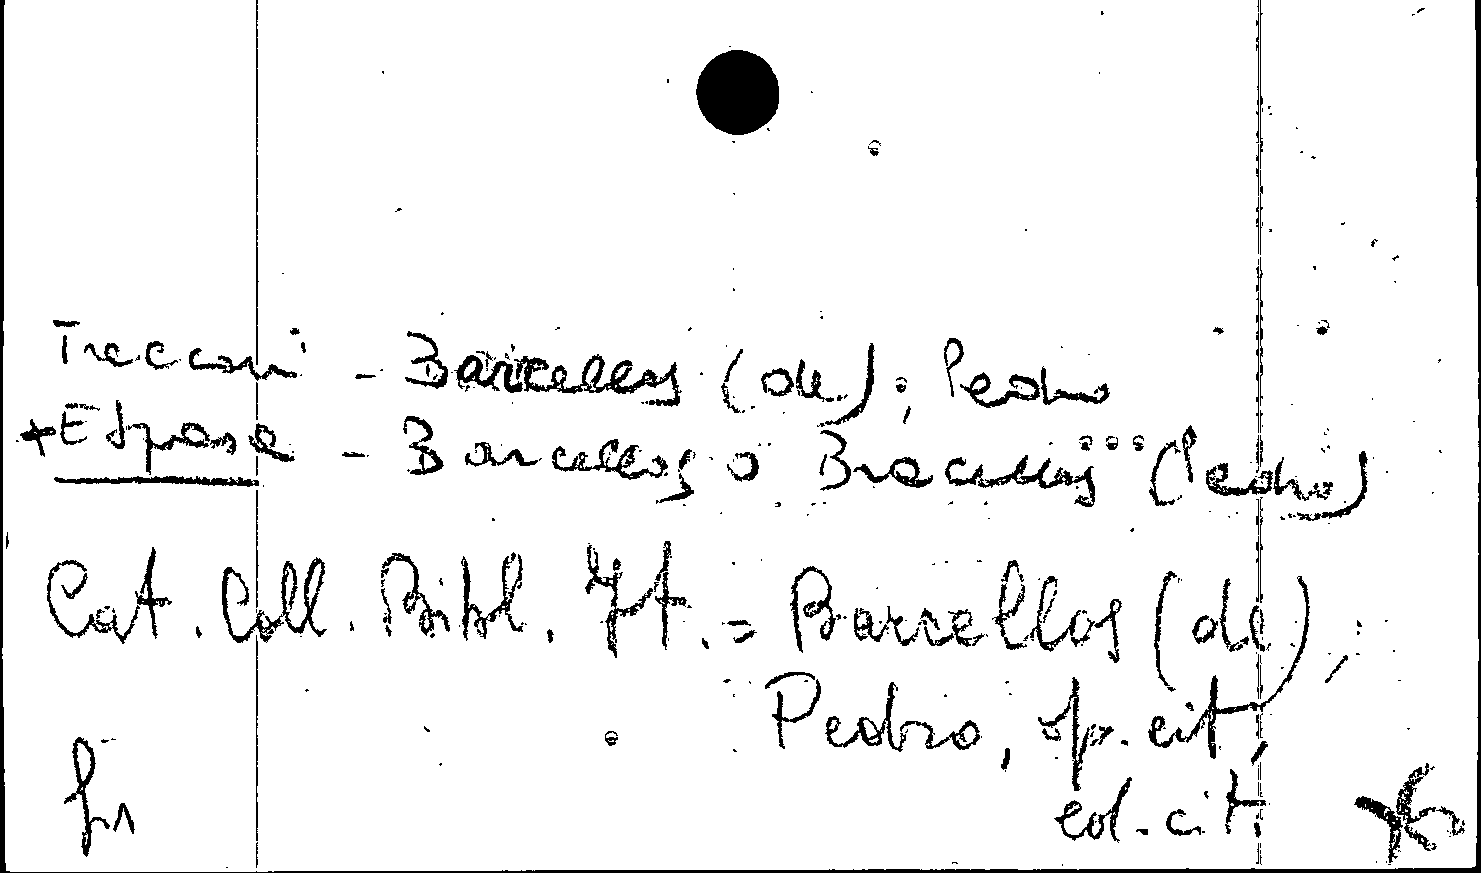 Treccani - Barcellos (de), Pedro
+ Espasa - Barcellos o Bracellos (Pedro)
Cat. Coll. Bibl. It. = Barcellos (de),
Pedro, op. cit,
ed. cit.